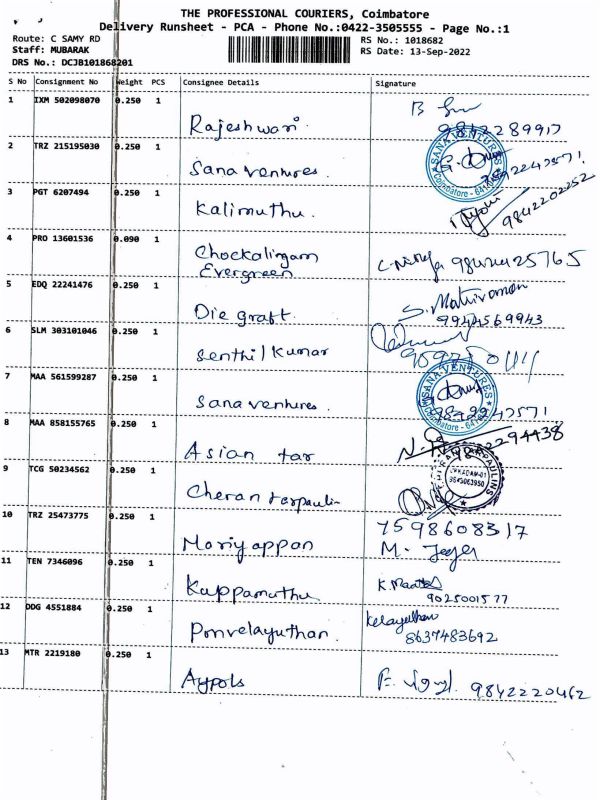 THE PROFESSIONAL COURIERS, Coimbatore
Delivery Runsheet - PCA - Phone No.:0422-3505555 - Page No.:1
Route: C SAMY RD
RS No.: 1018682
Staff: MUBARAK
RS Date: 13-Sep-2022
DRS No.: DCJB101868201
S No Consignment No Weight PCS Consignee Details Signature
1 IXM 502098070 0.250 1
Rajeshwari. 9842289917
2 TRZ 215195030 0.250 1
Sana ventures. SANA VENTURES
Coimbatore
3 PGT 6207494 0.250 1
Kalimuthu. 9842202252
4 PRO 13601536 0.090 1
Chockalingam
Evergreen
5 EDQ 22241476 0.250 1
Die graft. 9944569943
6 SLM 303101046 0.250 1
Senthil Kumar
7 MAA 561599287 0.250 1
Sana ventures. SANA VENTURES
Coimbatore
8 MAA 858155765 0.250 1
Asian tar
9 TCG 50234562 0.250 1
Cheran tarpaulin
10 TRZ 25473775 0.250 1
7598608317
Mariyappan
11 TEN 7346096 0.250 1
Kuppamuthu 9025001577
12 DDG 4551884 0.250 1
Ponvelayuthan. 8637483692
13 MTR 2219180 0.250 1
Aypols 9842220462